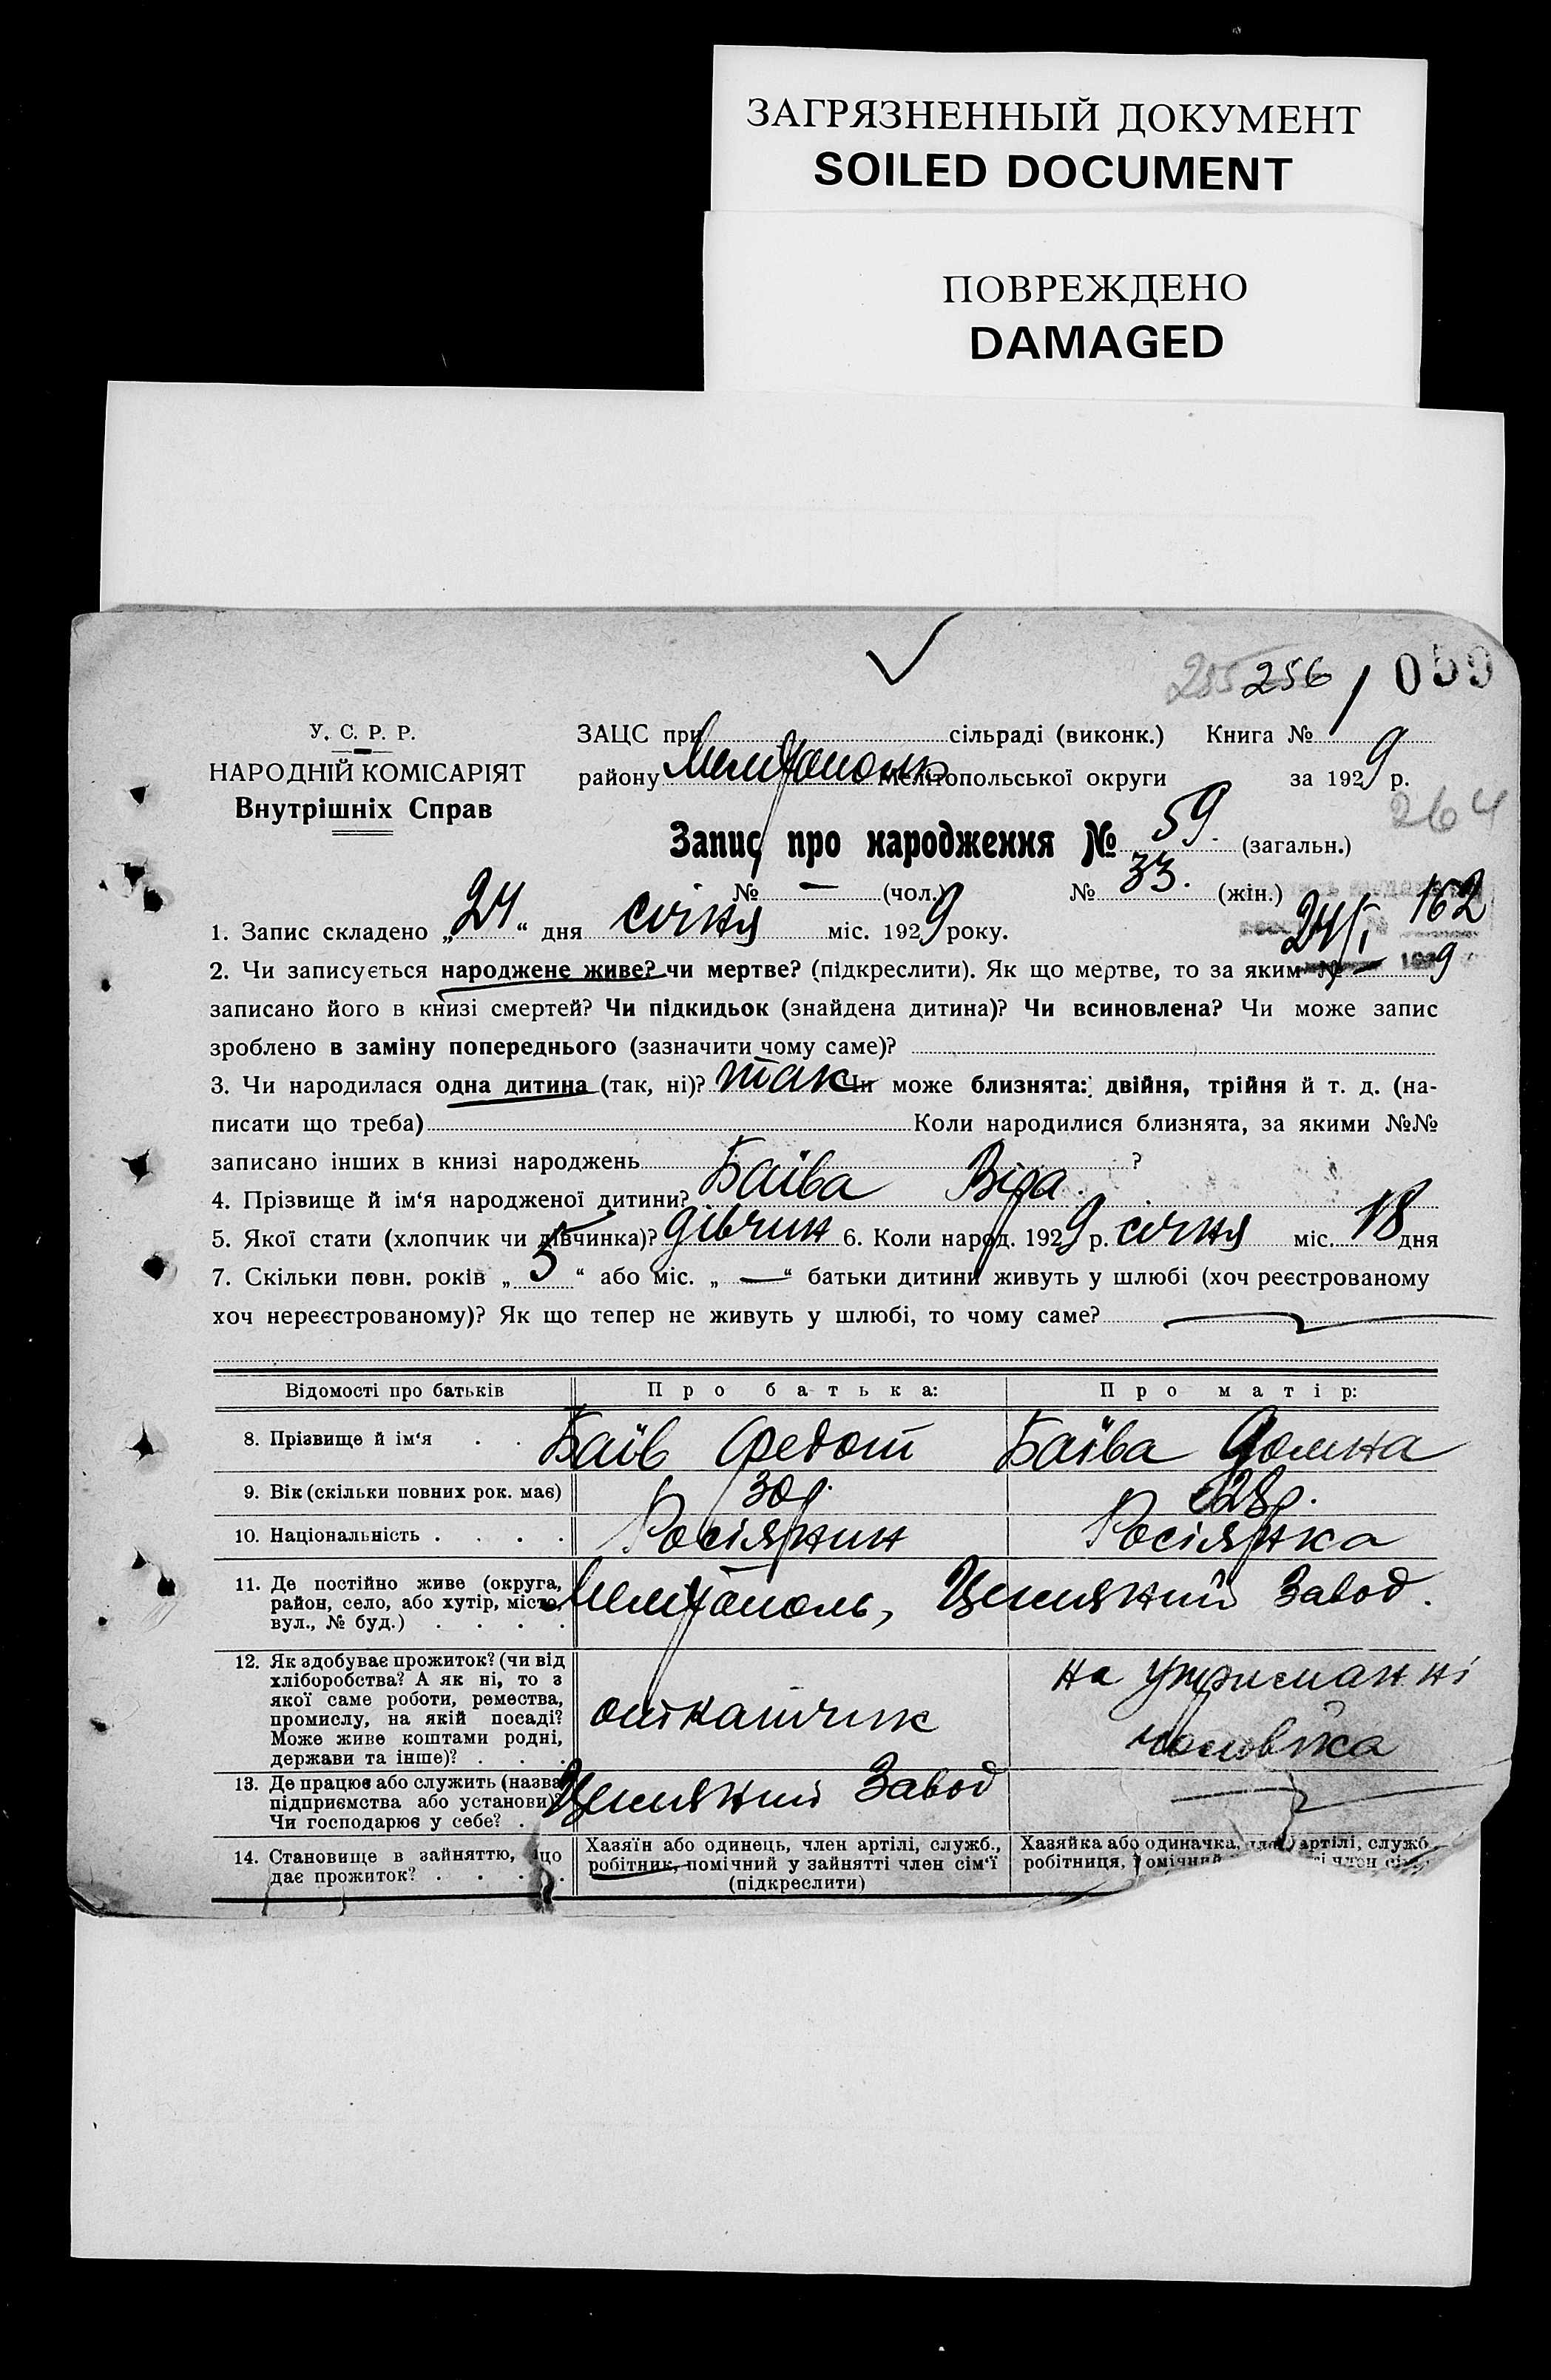 ЗАГРЯЗНЕННЫЙ ДОКУМЕНТ
SOILED DOCUMENT
ПОВРЕЖДЕНО
DAMAGED
285 256 / 059
У. С. Р. Р.
НАРОДНІЙ КОМІСАРІЯТ
Внутрішніх Справ
ЗАЦС при сільраді (виконк.) Книга №
району Мелітопольськ Мелітопольської округи за 1929 р.
264
Запис про народження № 59. (загальн.)
№ — (чол.) № 33. (жін.)
162
24/I
9
1. Запис складено „24“ дня січня міс. 1929 року.
2. Чи записується народжене живе? чи мертве? (підкреслити). Як що мертве, то за яким № —
записано його в книзі смертей? Чи підкидьок (знайдена дитина)? Чи всиновлена? Чи може запис
зроблено в заміну попереднього (зазначити чому саме)?
3. Чи народилася одна дитина (так, ні)? так Чи може близнята: двійня, трійня й т. д. (на-
писати що треба) Коли народилися близнята, за якими №№
записано інших в книзі народжень ?
4. Прізвище й ім‘я народженої дитини? Баїва Віра.
5. Якої стати (хлопчик чи дівчинка)? дівчин 6. Коли народ. 1929 р. січня міс. 18 дня
7. Скільки повн. років „5“ або міс. „—“ батьки дитини живуть у шлюбі (хоч реєстрованому
хоч нереєстрованому)? Як що тепер не живуть у шлюбі, то чому саме?
Відомості про батьків Про батька: Про матір:
8. Прізвище й ім‘я . . Баїв Федот Баїва Домна
9. Вік (скільки повних рок. має) 30 р. 28 р.
10. Національність . . . . Росіянин Росіянка
11. Де постійно живе (округа,
район, село, або хутір, місто,
вул., № буд.) . . . .
Мелітополь, Цегляний Завод.
12. Як здобуває прожиток? (чи від
хліборобства? А як ні, то з
якої саме роботи, ремества,
промислу, на якій посаді?
Може живе коштами родні,
держави та інше)? . . .
откатчик
на утриманні
чоловіка
13. Де працює або служить (назва
підприємства або установи)?
Чи господарює у себе? .
Цегляний Завод
14. Становище в зайняттю, що
дає прожиток? . . . .
Хазяїн або одинець, член артілі, служб.,
робітник, помічний у зайнятті член сім‘ї
(підкреслити)
Хазяйка або одиначка, артілі, служб.
робітниця, помічний член